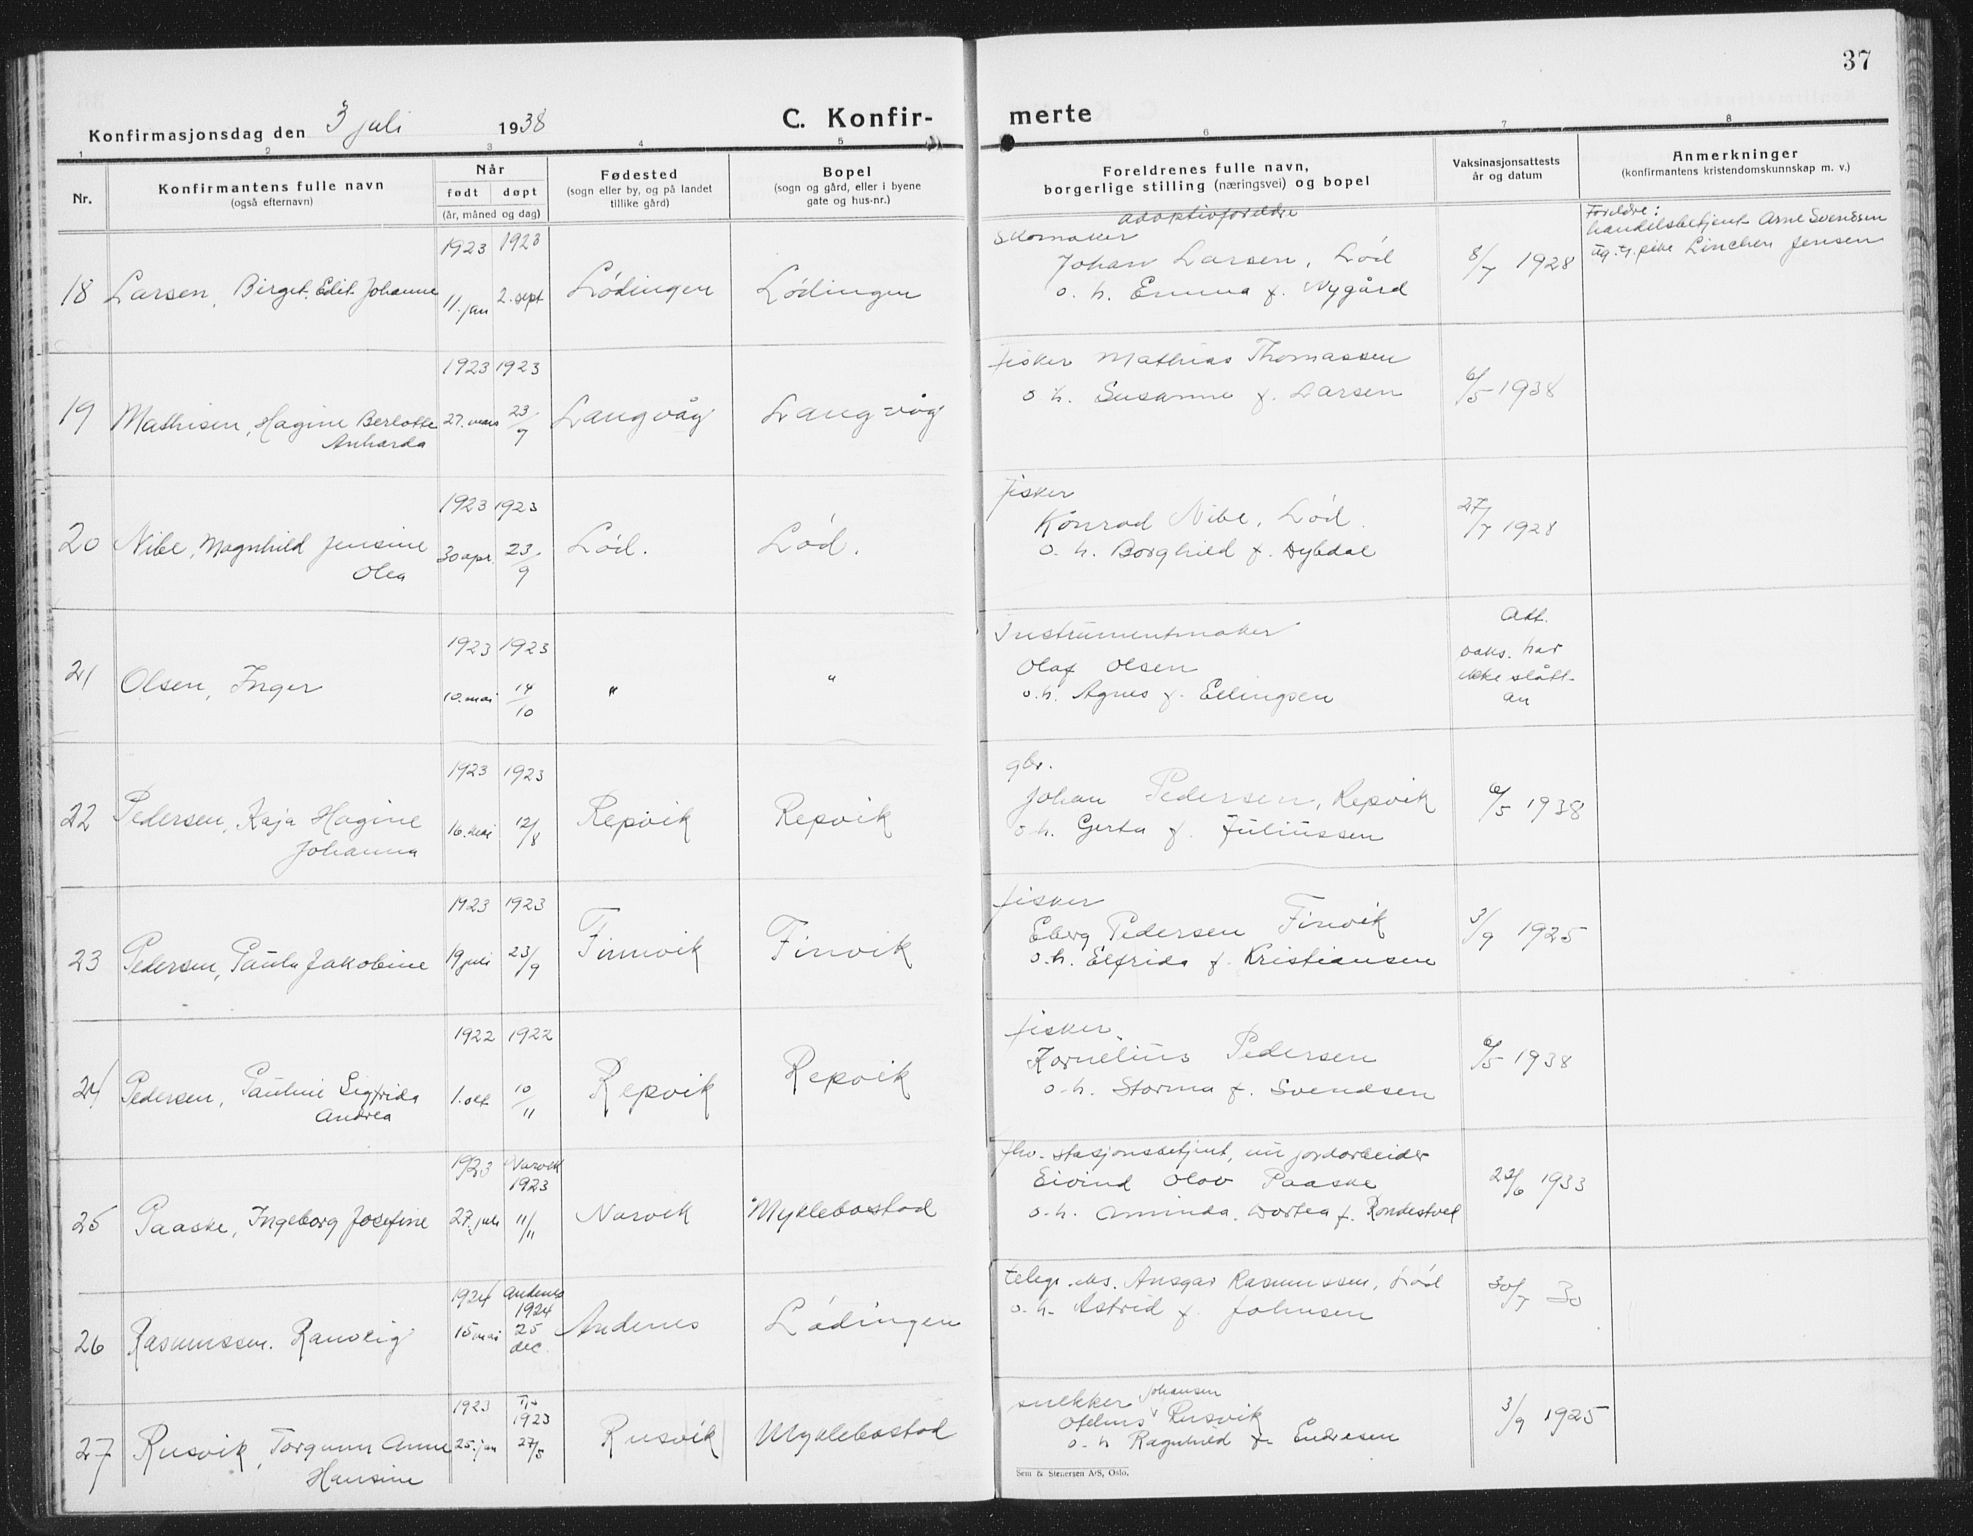 37
Konfirmasjonsdag den 3 juli 1938
C. Konfir-
merte
1 2 3 4 5 6 7 8
Nr.
Konfirmantens fulle navn
(også efternavn)
Når
født døpt
(år, måned og dag)
Fødested
(sogn eller by, og på landet
tillike gård)
Bopel
(sogn og gård, eller i byene
gate og hus-nr.)
Foreldrenes fulle navn,
borgerlige stilling (næringsvei) og bopel
Vaksinasjonsattests
år og datum
Anmerkninger
(konfirmantens kristendomskunnskap m. v.)
18 Larsen, Birget Edit Johanne
1923 11. jan
1923 2. sept
Lødingen
Lødingen
adoptivforeldre
Skomaker
Johan Larsen, Lød
o. h. Emma f. Nygård
8/7 1928
Foreldre:
handelsbetjent Arne Svendsen
ug. t. pike Linchen Jensen
19 Mathisen, Hagine Berlotte
Anharda
1923 27. mars
1923 23/7
Langvåg
Langvåg
fisker Mathias Thomassen
o. h. Susanne f. Larsen
6/5 1938
20 Nibe, Magnhild Jensine
Olea
1923 30 apr.
1923 23/9
Lød.
Lød.
fisker
Konrad Nibe, Lød.
o. h. Borghild f. Dybdal
27/7 1928
21 Olsen, Inger
1923 10. mai
1923 14/10
"
"
Instrumentmaker
Olaf Olsen
o. h. Agnes f. Ellingsen
Att.
vaks. har
ikke slått
an
22 Pedersen, Kaja Hagine
Johanna
1923 16. mai
1923 12/8
Repvik
Repvik
gbr.
Johan Pedersen, Repvik
o. h. Gerta f. Juliussen
6/5 1938
23 Pedersen, Paula Jakobine
1923 19 juli
1923 23/9
Finnvik
Finvik
fisker
Eberg Pedersen Finvik
o. h. Elfrida f. Kristiansen
3/9 1925
24 Pedersen, Pauline Sigfrida
Andrea
1922 1. okt
1922 10/11
Repvik
Repvik
fisker
Kornelius Pedersen
o. h. Storma f. Svendsen
6/5 1938
25 Paaske, Ingeborg Josefine
1923 27. juli
Narvik
1923
11/11
Narvik
Myklebostad
fhv. stasjonsbetjent, nu jordarbeider
Eivind Olav Paaske
o. h. Aminda Dortea f. Rondestvet
22/6 1933
26 Rasmussen, Ranveig
1924 15 mai
Andenes
1924
25
dec.
Andenes
Lødingen
telegr. eks. Ansgar Rasmussen, Lød
o. h. Astrid f. Johnsen
30/7 30
27 Rusvik, Torgunn Anne
Hansine
1923 25. jan
1923
27/5
Rusvik
Myklebostad
snekker Johansen
Ofelius Rusvik
o. h. Ragnhild f. Endresen
3/9 1925
Sem & Stenersen A/S, Oslo.